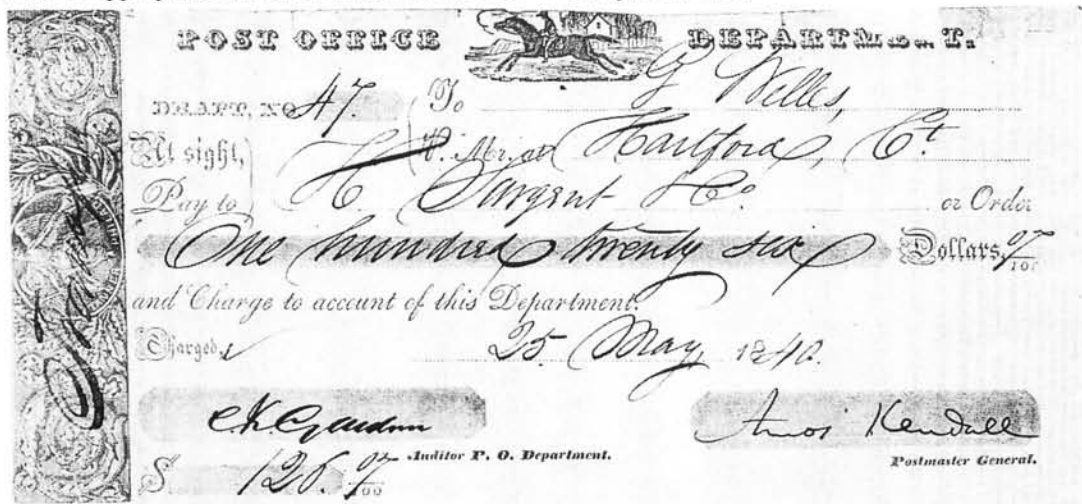 POST OFFICE DEPARTMENT.
DRAFT, NO 47. To G Welles,
At sight, P. Mr. at Hartford, Ct
Pay to H Sargent & Co. or Order
One hundred twenty six Dollars 07/100
and Charge to account of this Department.
Charged, 25 May 1840.
C.K. Gardner Amos Kendall
Auditor P. O. Department. Postmaster General.
$ 126. 07/100